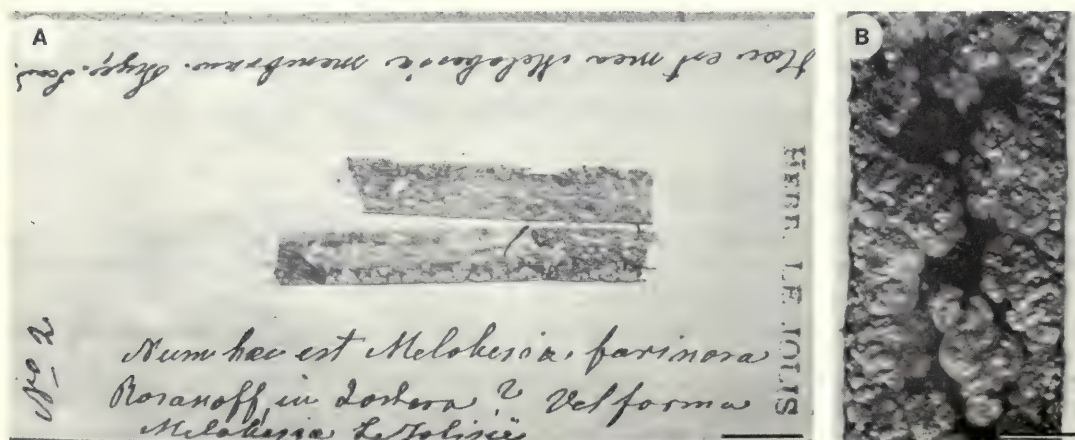 A
B
Hæc est mea Melobesia membran. Phyc.
HERB. LE JOLIS
No 2
Num hæc est Melobesia farinosa
Rosanoff, in Zostera? Vel forma
Melobesia LeJolisii